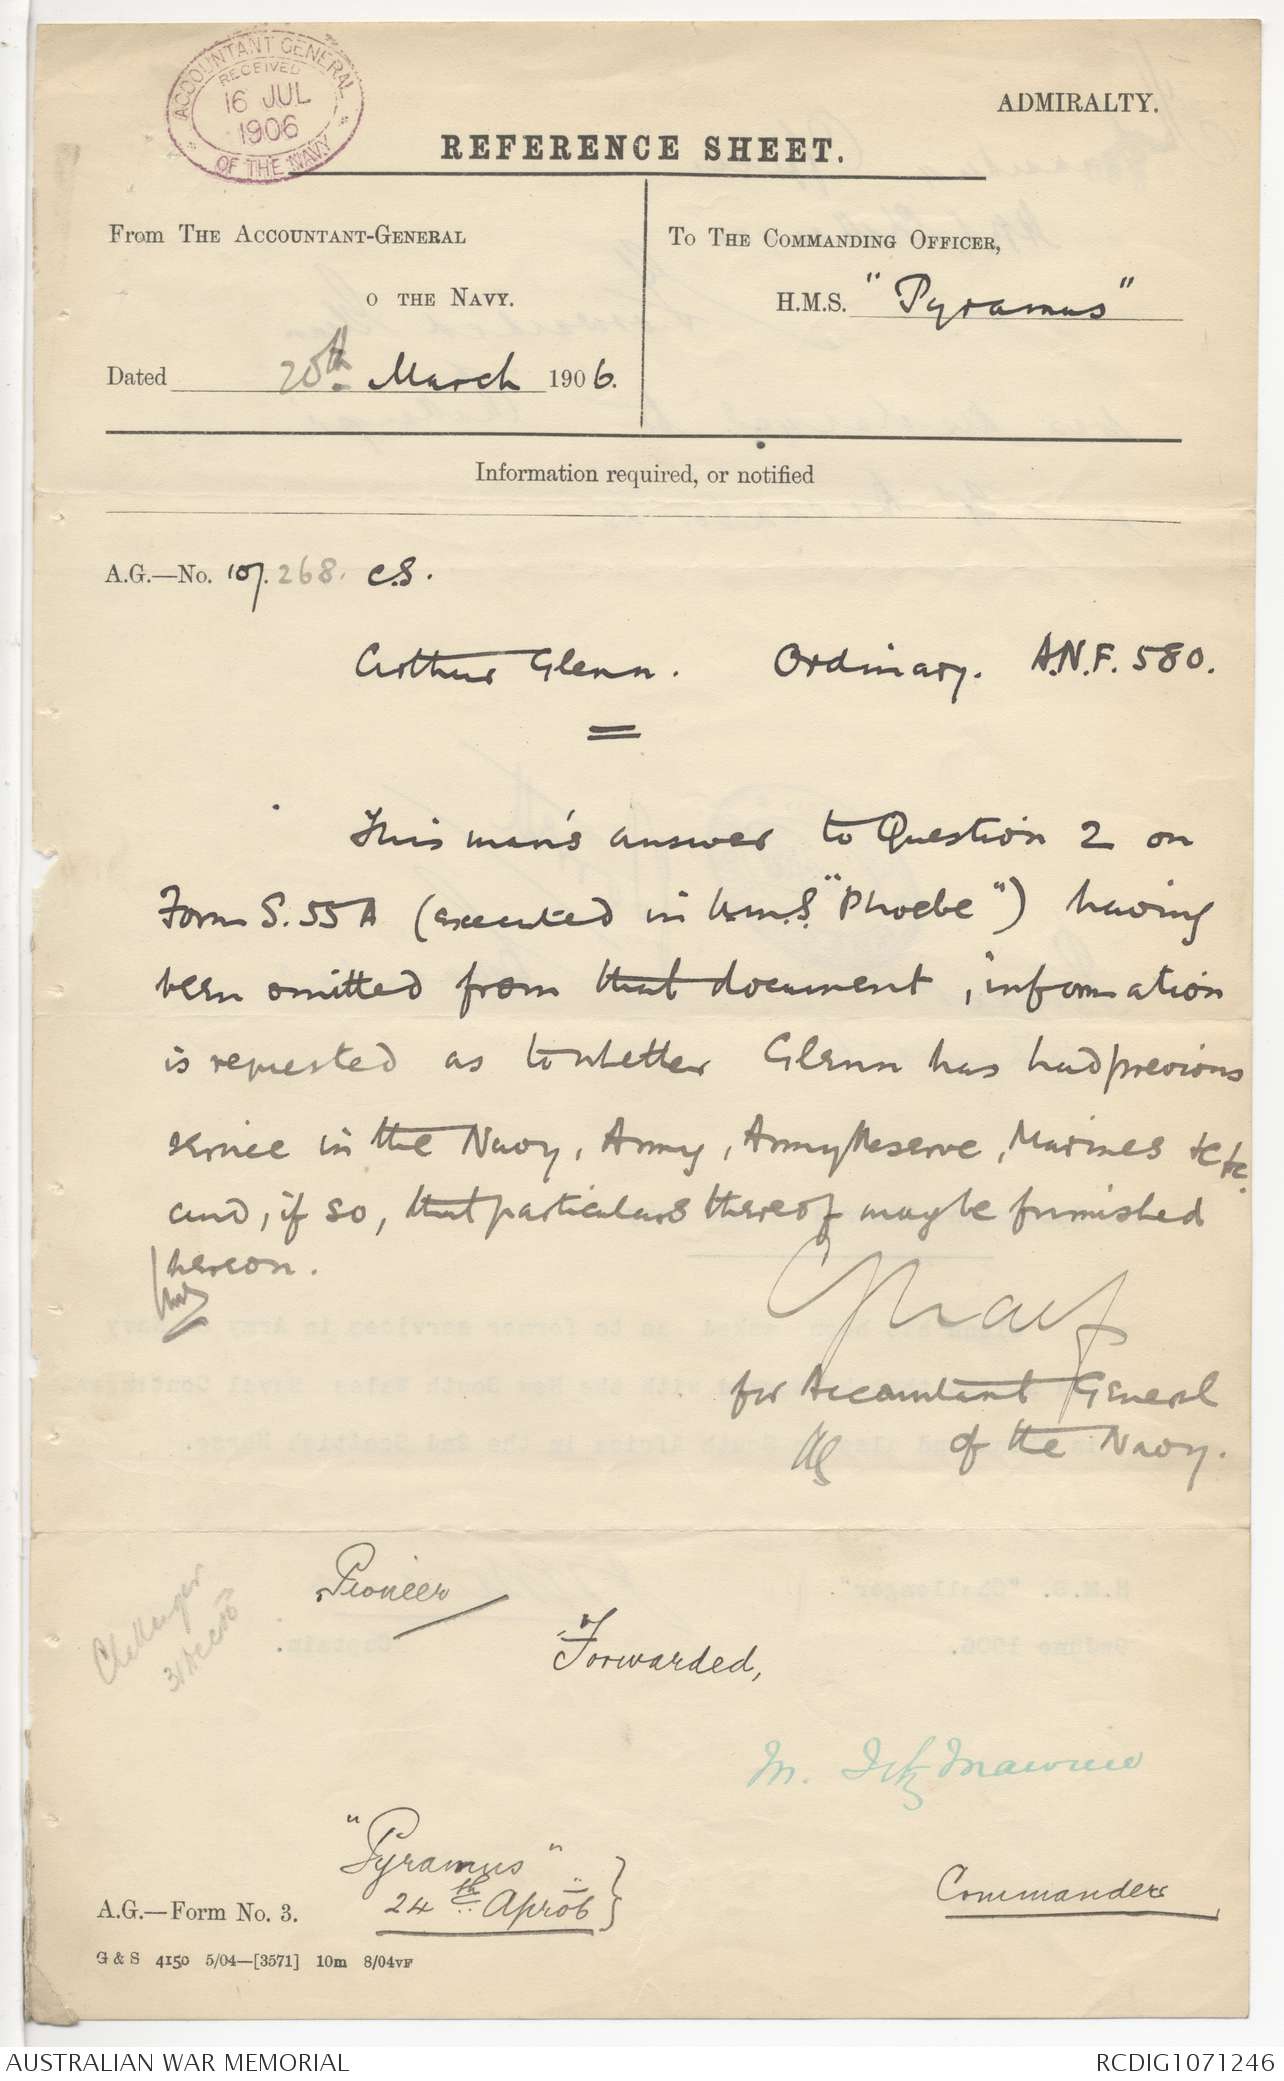 ACCOUNTANT GENERAL
RECEIVED
16 JUL
1906
OF THE NAVY
ADMIRALTY.
REFERENCE SHEET.
From THE ACCOUNTANT-GENERAL
O THE NAVY.
Dated 20th March 1906.
To THE COMMANDING OFFICER,
H.M.S. "Pyramus"
Information required, or notified
A.G.—No. 107. 268. C.S.
Arthur Glenn. Ordinary. A.N.F. 580.
This man's answer to Question 2 on
Form S. 55A (executed in H.M.S. "Phoebe") having
been omitted from that document, information
is requested as to whether Glenn has had previous
service in the Navy, Army, Army Reserve, Marines &c &c.
and, if so, that particulars thereof may be furnished
hereon.
for Accountant General
of the Navy.
Pioneer
Challenger
31 Dec 05
Forwarded,
M. FitzMaurice
"Pyramus"
24th Apr 06
Commander
A.G.—Form No. 3.
G & S 4150 5/04—[3571] 10m 8/04VF
AUSTRALIAN WAR MEMORIAL
RCDIG1071246